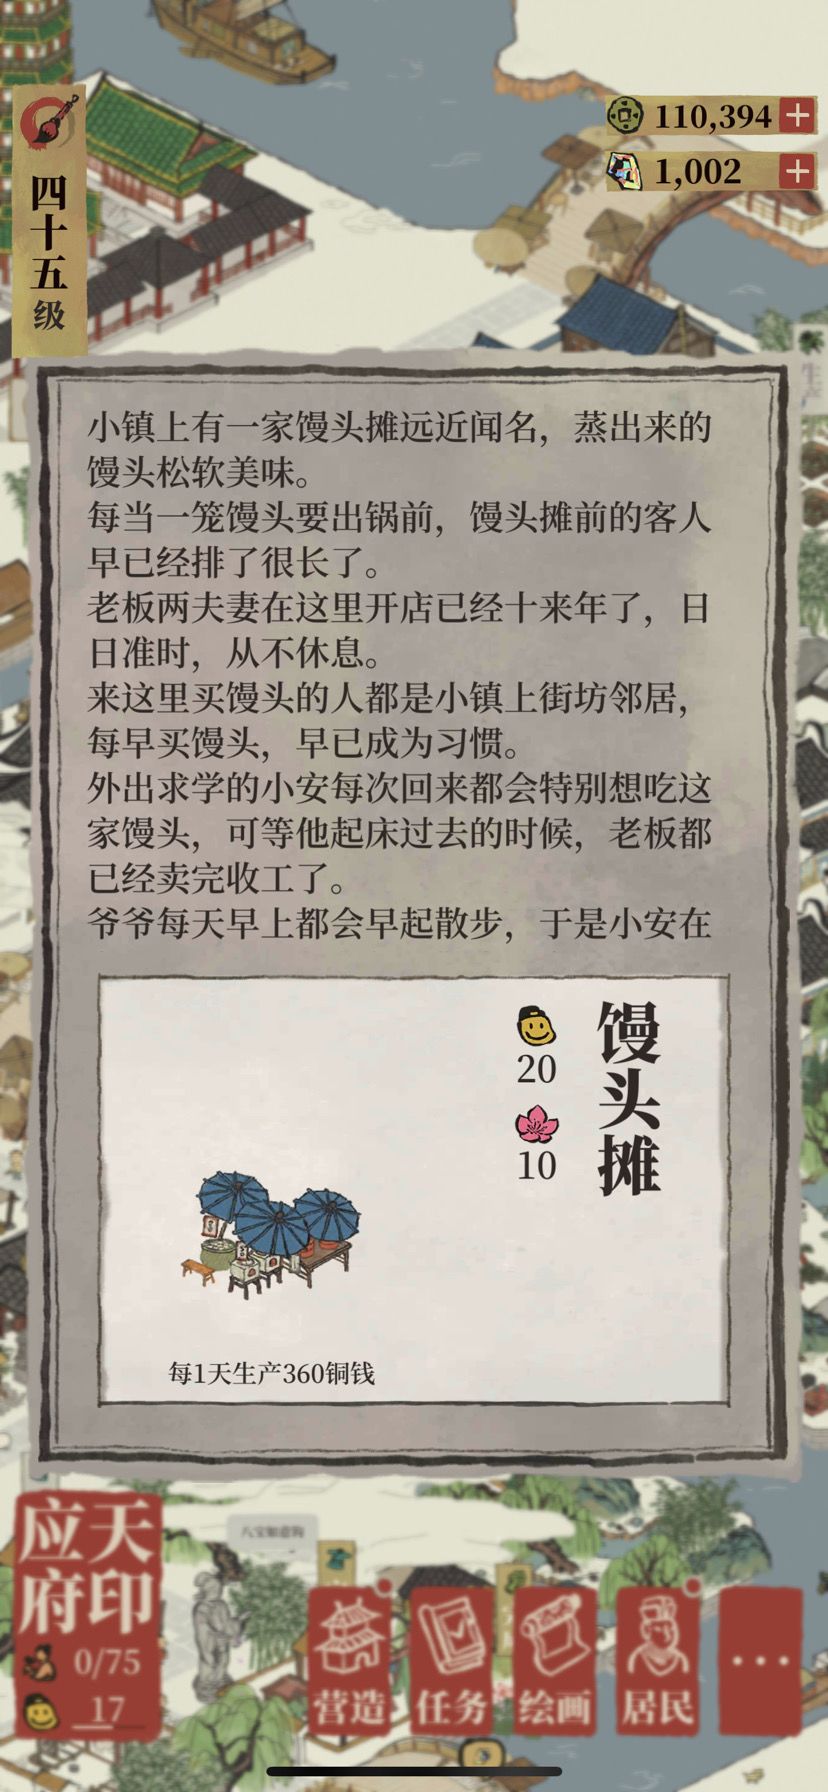 四十五级
110,394
1,002
小镇上有一家馒头摊远近闻名，蒸出来的
馒头松软美味。
每当一笼馒头要出锅前，馒头摊前的客人
早已经排了很长了。
老板两夫妻在这里开店已经十来年了，日
日准时，从不休息。
来这里买馒头的人都是小镇上街坊邻居，
每早买馒头，早已成为习惯。
外出求学的小安每次回来都会特别想吃这
家馒头，可等他起床过去的时候，老板都
已经卖完收工了。
爷爷每天早上都会早起散步，于是小安在
馒头摊
20
10
每1天生产360铜钱
天印
应府
0/75
17
营造
任务
绘画
居民